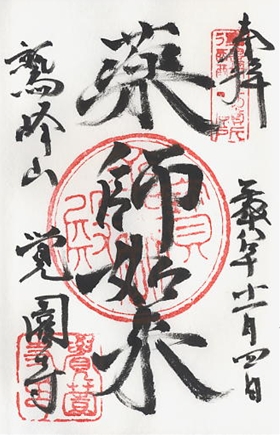 奉拝
十一月四日
薬師如来
鷲峰山 覚園寺